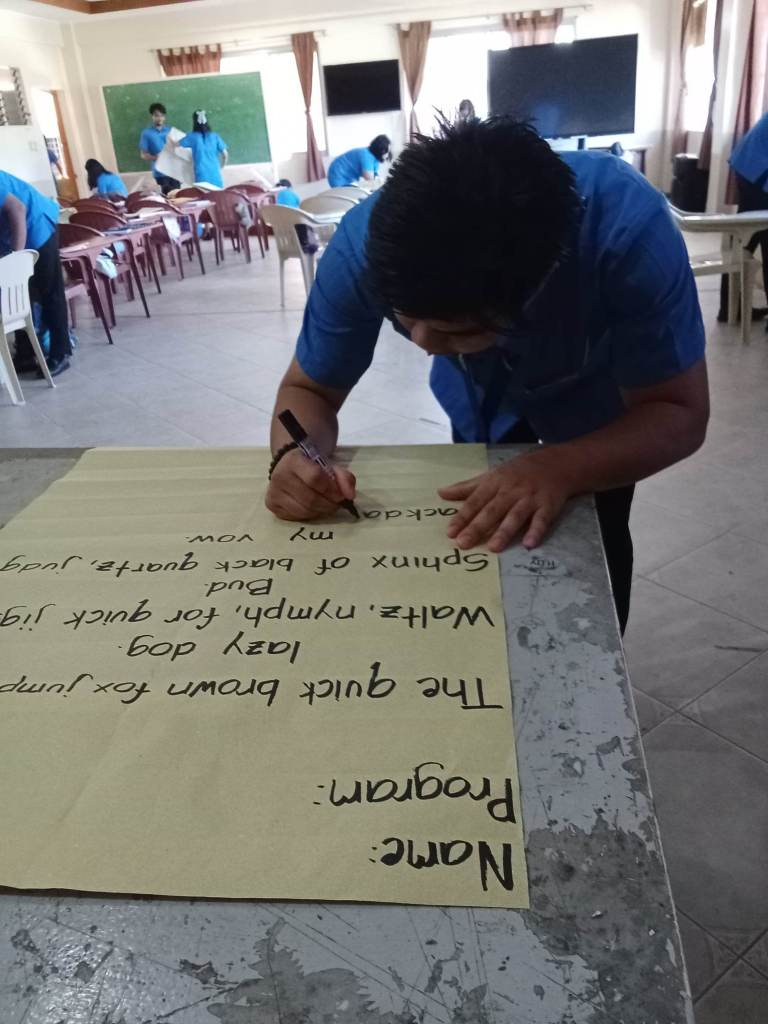 Name:
Program:
The quick brown fox jump
lazy dog.
Waltz, nymph, for quick jig
Bud.
Sphinx of black quartz, judg
my vow.
ackda